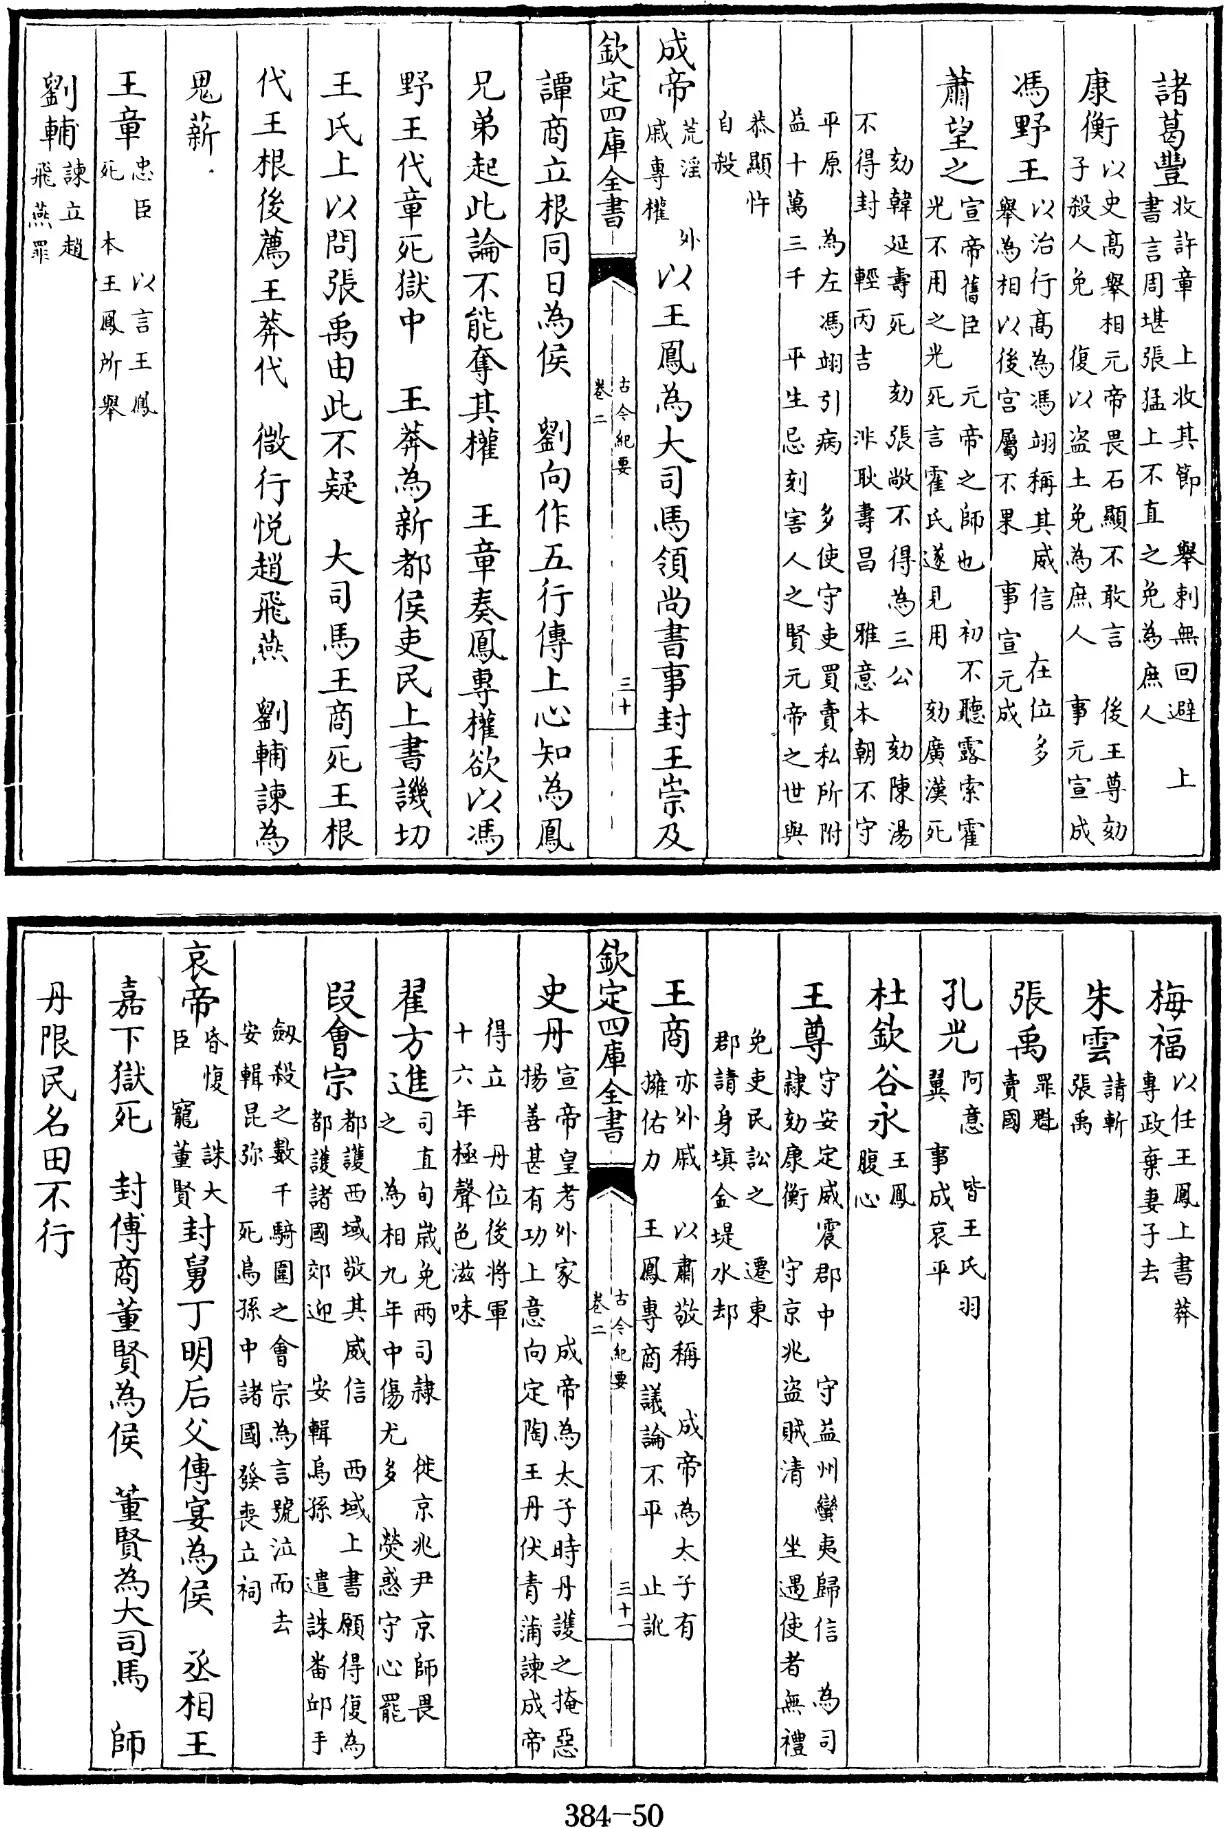 諸葛豐收許章　上收其節　舉刺無回避　上
書言周堪張猛上不直之免為庶人
康衡以史高舉相元帝畏石顯不敢言　後王尊劾
子殺人免　復以盜土免為庶人　事元宣成
馮野王以治行高為馮翊稱其威信　在位多
舉為相以後宮屬不果　事宣元成
蕭望之宣帝舊臣　元帝之師也　初不聽露索霍
光不用之光死言霍氏遂見用　劾廣漢死
劾韓延壽死　劾張敞不得為三公　劾陳湯
不得封　輕丙吉　沮耿壽昌　雅意本朝不守
平原　為左馮翊引病　多使守吏買賣私所附
益十萬三千　平生忌刻害人之賢元帝之世與
恭顯忤
自殺
成帝荒淫　外
戚專權以王鳳為大司馬領尚書事封王崇及
欽定四庫全書
古今紀要
卷二
三十
譚商立根同日為侯　劉向作五行傳上心知為鳳
兄弟起此論不能奪其權　王章奏鳳專權欲以馮
野王代章死獄中　王莽為新都侯吏民上書譏切
王氏上以問張禹由此不疑　大司馬王商死王根
代王根後薦王莽代　微行悅趙飛燕　劉輔諫為
鬼薪
王章忠臣　以言王鳳
死　本王鳳所舉
劉輔諫立趙
飛燕罪
梅福以任王鳳上書莽
專政棄妻子去
朱雲請斬
張禹
張禹罪魁
賣國
孔光阿意　皆王氏羽
翼　事成哀平
杜欽谷永王鳳
腹心
王尊守安定威震郡中　守益州蠻夷歸信　為司
隸劾康衡　守京兆盜賊清　坐遇使者無禮
免吏民訟之　遷東
郡請身填金堤水却
王商亦外戚　以肅敬稱　成帝為太子有
擁佑力　王鳳專商議論不平　止訛
欽定四庫全書
古今紀要
卷二
三十一
史丹宣帝皇考外家　成帝為太子時丹護之掩惡
揚善甚有功上意向定陶王丹伏青蒲諫成帝
得立　丹位後將軍
十六年極聲色滋味
翟方進司直旬歲免兩司隸　徙京兆尹京師畏
之　為相九年中傷尤多　熒惑守心罷
段會宗都護西域敬其威信　西域上書願得復為
都護諸國郊迎　安輯烏孫　遣誅番邱手
劔殺之數千騎圍之會宗為言號泣而去
安輯昆弥　死烏孫中諸國發喪立祠
哀帝昏愎　誅大
臣　寵董賢封舅丁明后父傅宴為侯　丞相王
嘉下獄死　封傅商董賢為侯　董賢為大司馬　師
丹限民名田不行
384-50